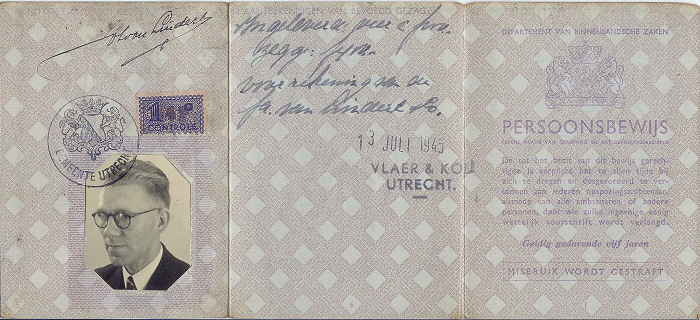 GEMEENTE UTRECHT
CONTROLE
AANTEEKENINGEN VAN BEVOEGD GEZAG
voor rekening van de
fa. van Lindert & Co.
13 JULI 1945
VLAER & KOL
UTRECHT.
6
DEPARTEMENT VAN BINNENLANDSCHE ZAKEN
PERSOONSBEWIJS
De tot het bezit van dit bewijs gerech-
tigde is verplicht het te allen tijde bij
zich te dragen en desgevorderd te ver-
toonen aan iederen opsporingsambtenaar
alsmede aan alle ambtenaren of andere
personen, door wie zulks ingevolge eenig
wettelijk voorschrift wordt verlangd.
Geldig gedurende vijf jaren
MISBRUIK WORDT GESTRAFT
1